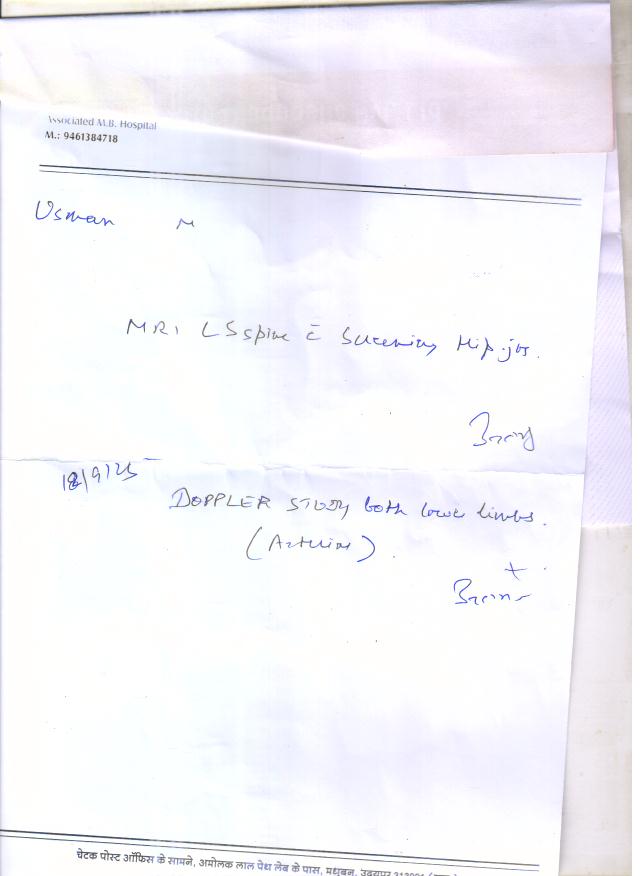 Associated M.B. Hospital
M.: 9461384718
Usman M
MRI LS spine c̄ Screening Hip jts.
18/9/25
DOPPLER STUDY both lower limbs.
(Arterial).
चेटक पोस्ट ऑफिस के सामने, अमोलक लाल पेथ लेब के पास, मधुबन, उदयपुर